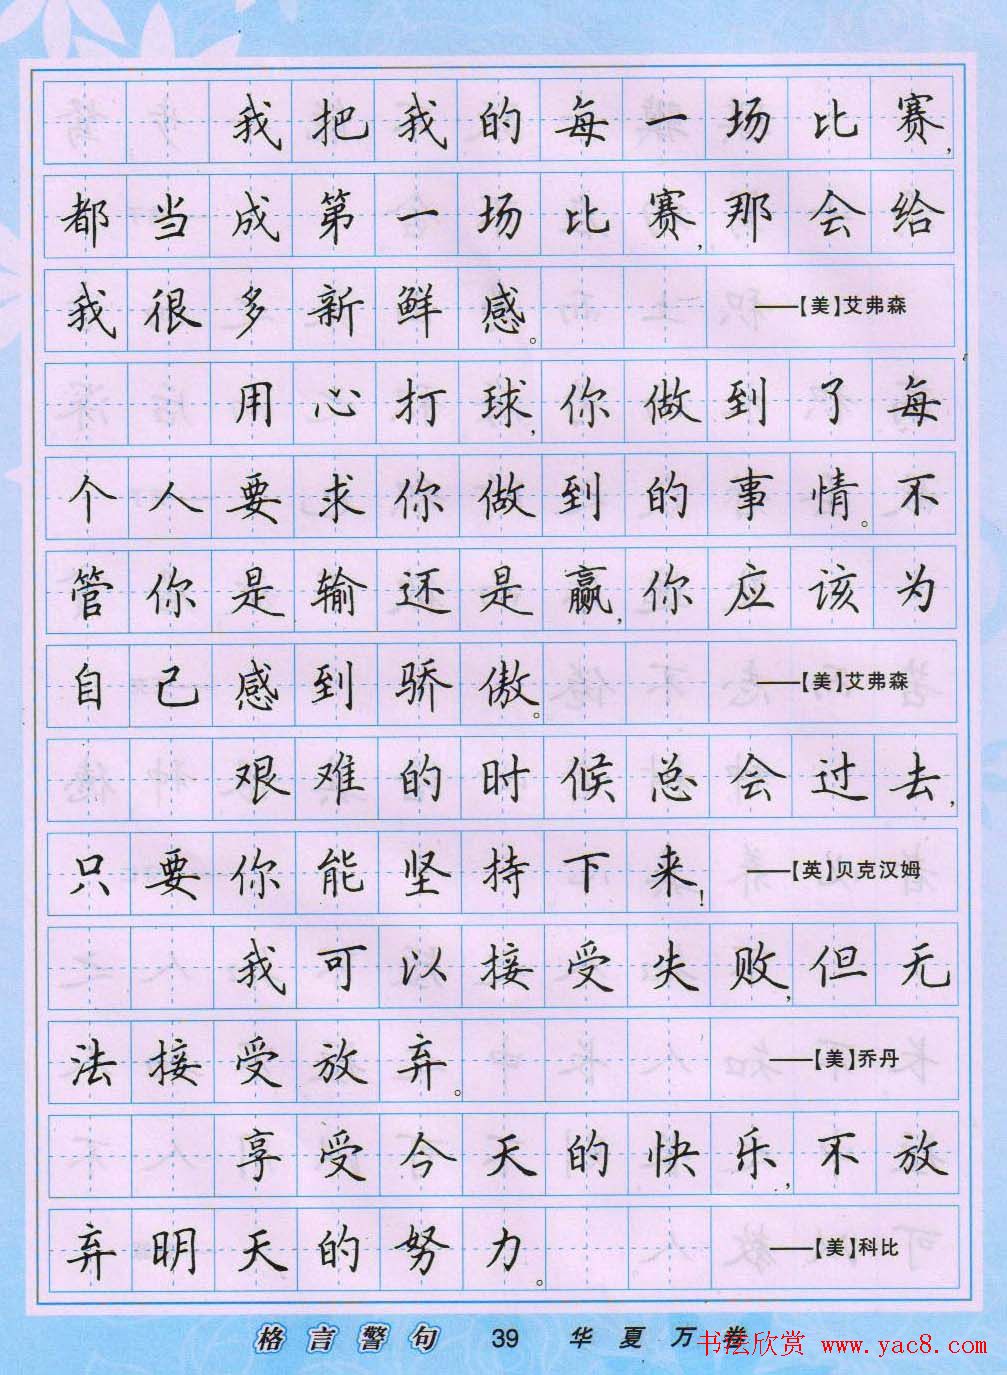 我把我的每一场比赛,
都当成第一场比赛,那会给
我很多新鲜感。——【美】艾弗森
用心打球,你做到了每
个人要求你做到的事情。不
管你是输还是赢,你应该为
自己感到骄傲。——【美】艾弗森
艰难的时候总会过去,
只要你能坚持下来!——【英】贝克汉姆
我可以接受失败,但无
法接受放弃。——【美】乔丹
享受今天的快乐,不放
弃明天的努力。——【美】科比
格言警句 39 华夏万卷
书法欣赏 www.yac8.com